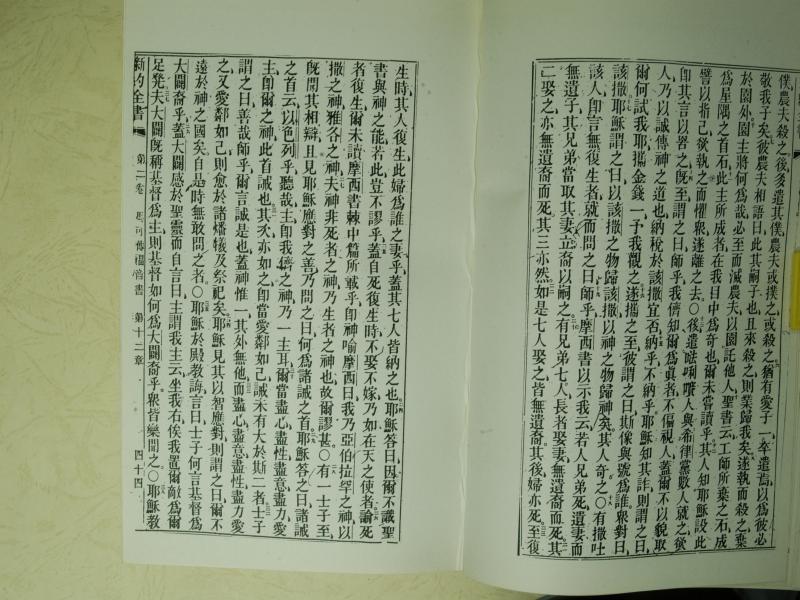 僕農夫殺之後多遣其僕農夫或撲之或殺之猶有愛子一卒遣焉以爲彼必
敬我子矣彼農夫相語曰此其嗣子也且來殺之則業歸我矣遂執而殺之棄
於園外園主將何爲哉必至而滅農夫以園託他人聖書云工師所棄之石成
爲屋隅之首石此主所成者在我目中爲奇也爾未嘗讀乎其人知耶穌設此
譬以指己欲執之而懼衆遂離之去〇後遣𠵽唎㘔人與希律黨數人就之欲
即其言以咎之旣至謂之曰師乎我儕知爾爲眞者不偏視人蓋爾不以貌取
人乃以誠傳神之道也納稅於該撒宜否納乎不納乎耶穌知其詐則謂之曰
爾何試我耶攜金錢一予我觀之遂攜之至彼謂之曰斯像與號爲誰衆對曰
該撒耶穌謂之曰以該撒之物歸該撒以神之物歸神矣其人奇之〇有撒吐
該人卽言無復生者就而問之曰師乎摩西書以示我云若人兄弟死遺妻而
無遺子其兄弟當取其妻立裔以嗣之有兄弟七人長者娶妻無遺裔而死其
二娶之亦無遺裔而死其三亦然如是七人娶之皆無遺裔其後婦亦死至復
生時其人復生此婦爲誰之妻乎蓋其七人皆納之也耶穌答曰因爾不識聖
書與神之能若此豈不謬乎蓋自死復生時不娶不嫁乃如在天之使者論死
者復生爾未讀摩西書棘中篇所載乎卽神喻摩西曰我乃亞伯拉罕之神以
撒之神雅各之神夫神非死者之神乃生者之神也故爾謬甚〇有一士子至
旣聞其相辯且見耶穌應對之善乃問之曰何爲諸誡之首耶穌答之曰諸誡
之首云以色列乎聽哉主卽我儕之神乃一主耳爾當盡心盡性盡意盡力愛
主卽爾之神此首誡也其次亦如之卽當愛鄰如己誡未有大於斯二者士子
謂之曰善哉師乎爾言誠是也蓋神惟一其外無他而盡心盡意盡性盡力愛
之又愛鄰如己則愈於諸燔犧及祭祀矣耶穌見其以智應對則謂之曰爾不
遠於神之國矣自是時無敢問之者〇耶穌於殿教誨言曰士子何言基督爲
大闢裔乎蓋大闢感於聖靈而自言曰主謂我主云坐我右俟我置爾敵爲爾
足凳夫大闢旣稱基督爲主則基督如何爲大闢裔乎衆皆樂聞之〇耶穌教
新約全書
第二卷
馬可傳福音書
第十二章
四十四